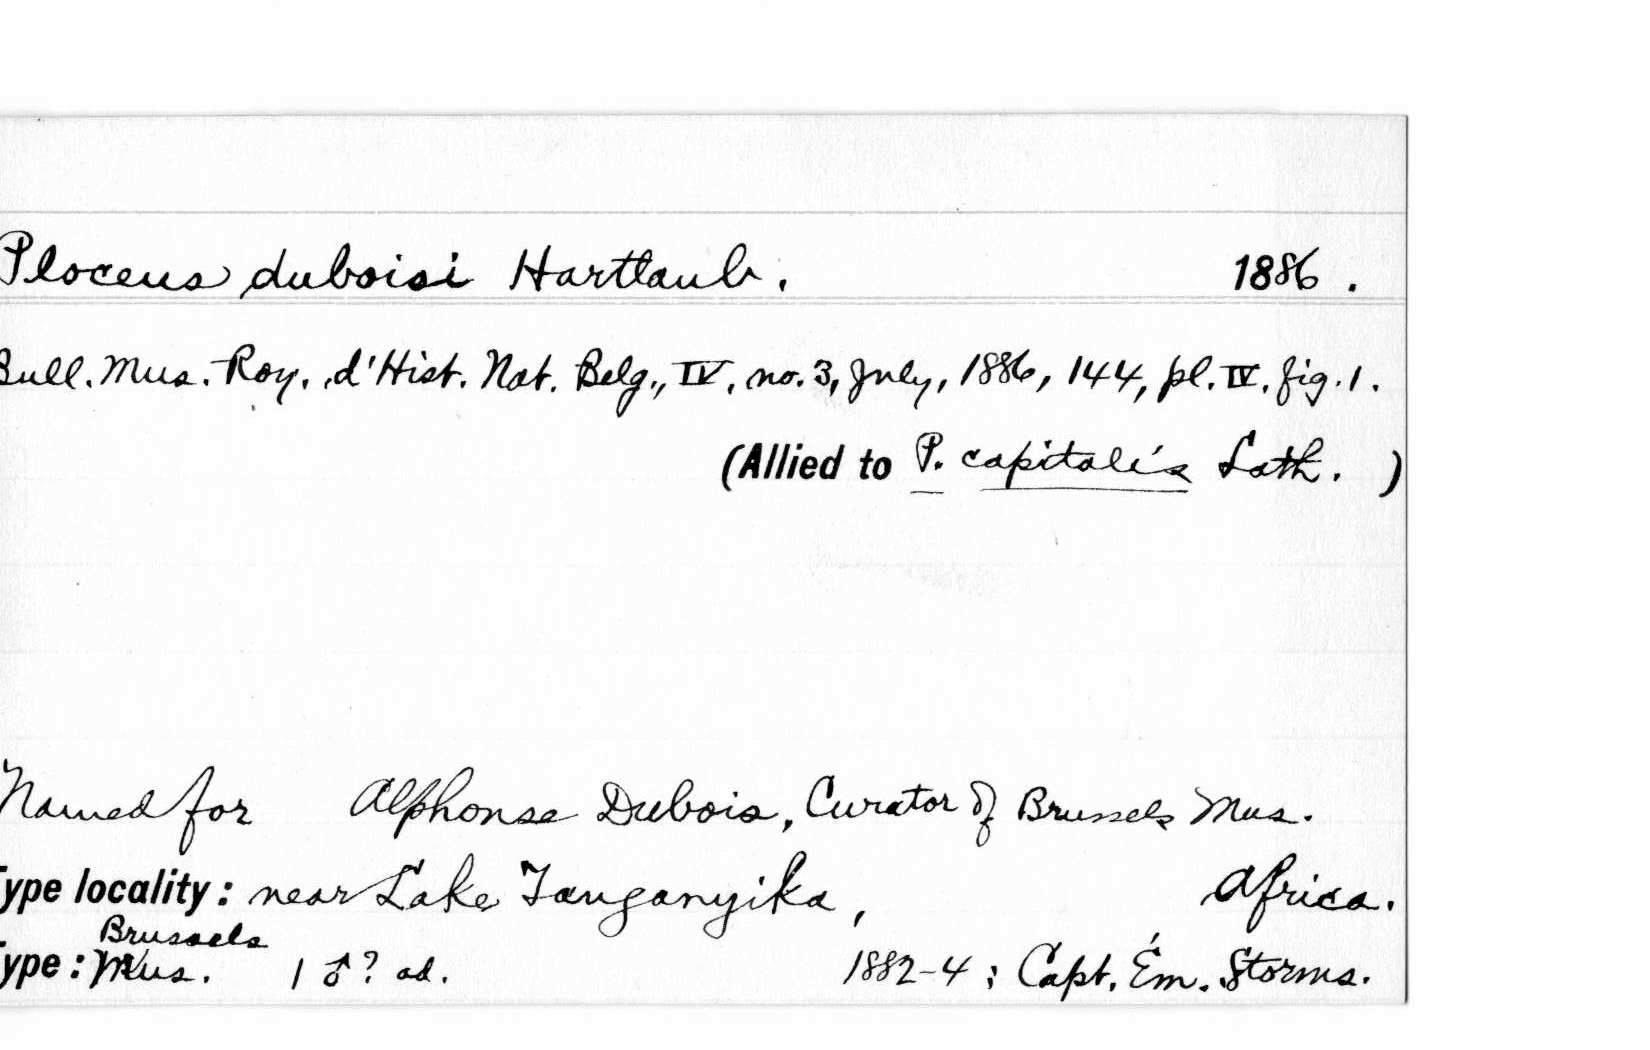 Ploceus duboisi Hartlaub. 1886.
Bull. Mus. Roy. d'Hist. Nat. Belg., IV, no. 3, July, 1886, 144, pl. IV. fig. 1.
(Allied to P. capitalis Lath. )
Named for Alphonse Dubois, Curator of Brussels Mus.
Type locality: near Lake Tanganyika, Africa.
Brussels
Type: Mus. 1 ♂? ad. 1882-4; Capt. Ém. Storms.